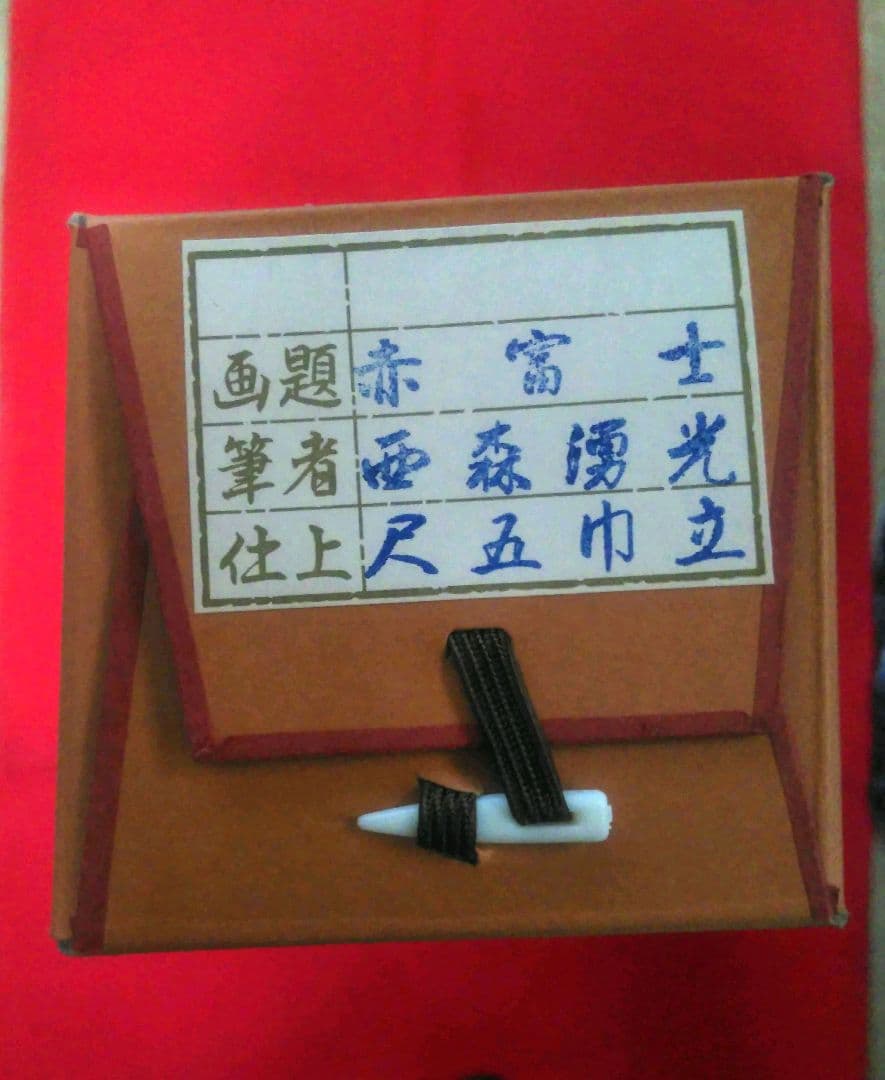 画題 赤富士
筆者 西森湧光
仕上 尺五巾立